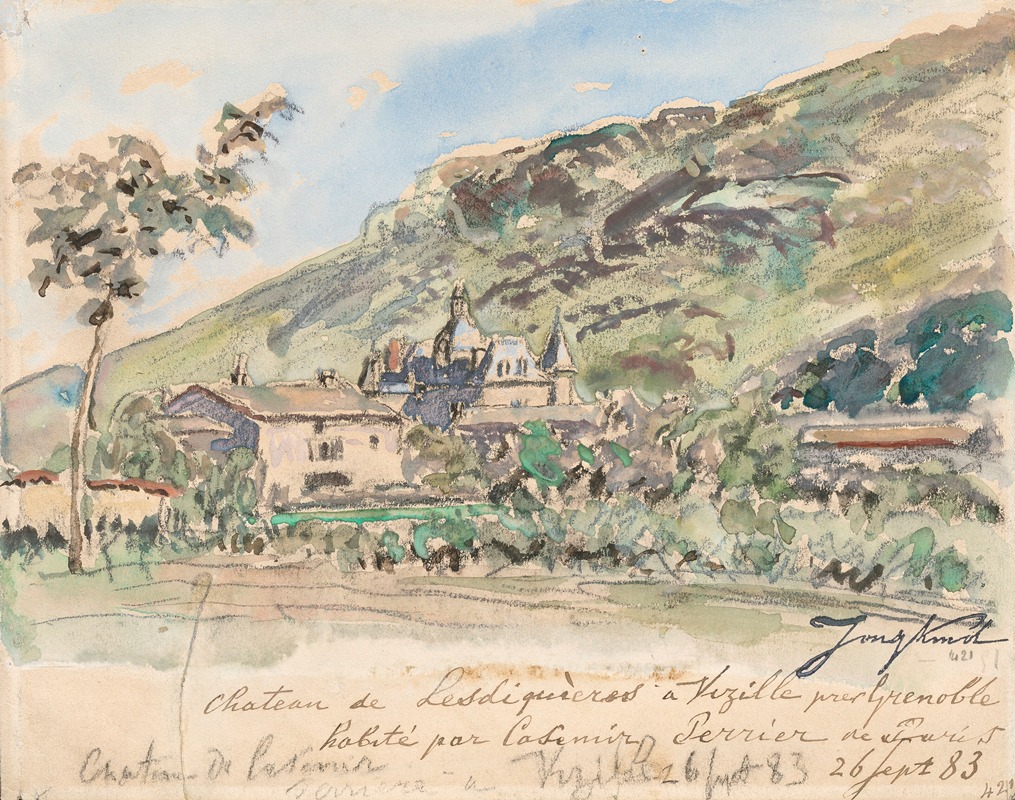 Jongkind
421
chateau de Lesdiguières à Vizille pres Grenoble
habité par Casimir Perrier de Paris
26 sept 83
Chateau de Casimir
Perrier a Vizille 26 sept 83